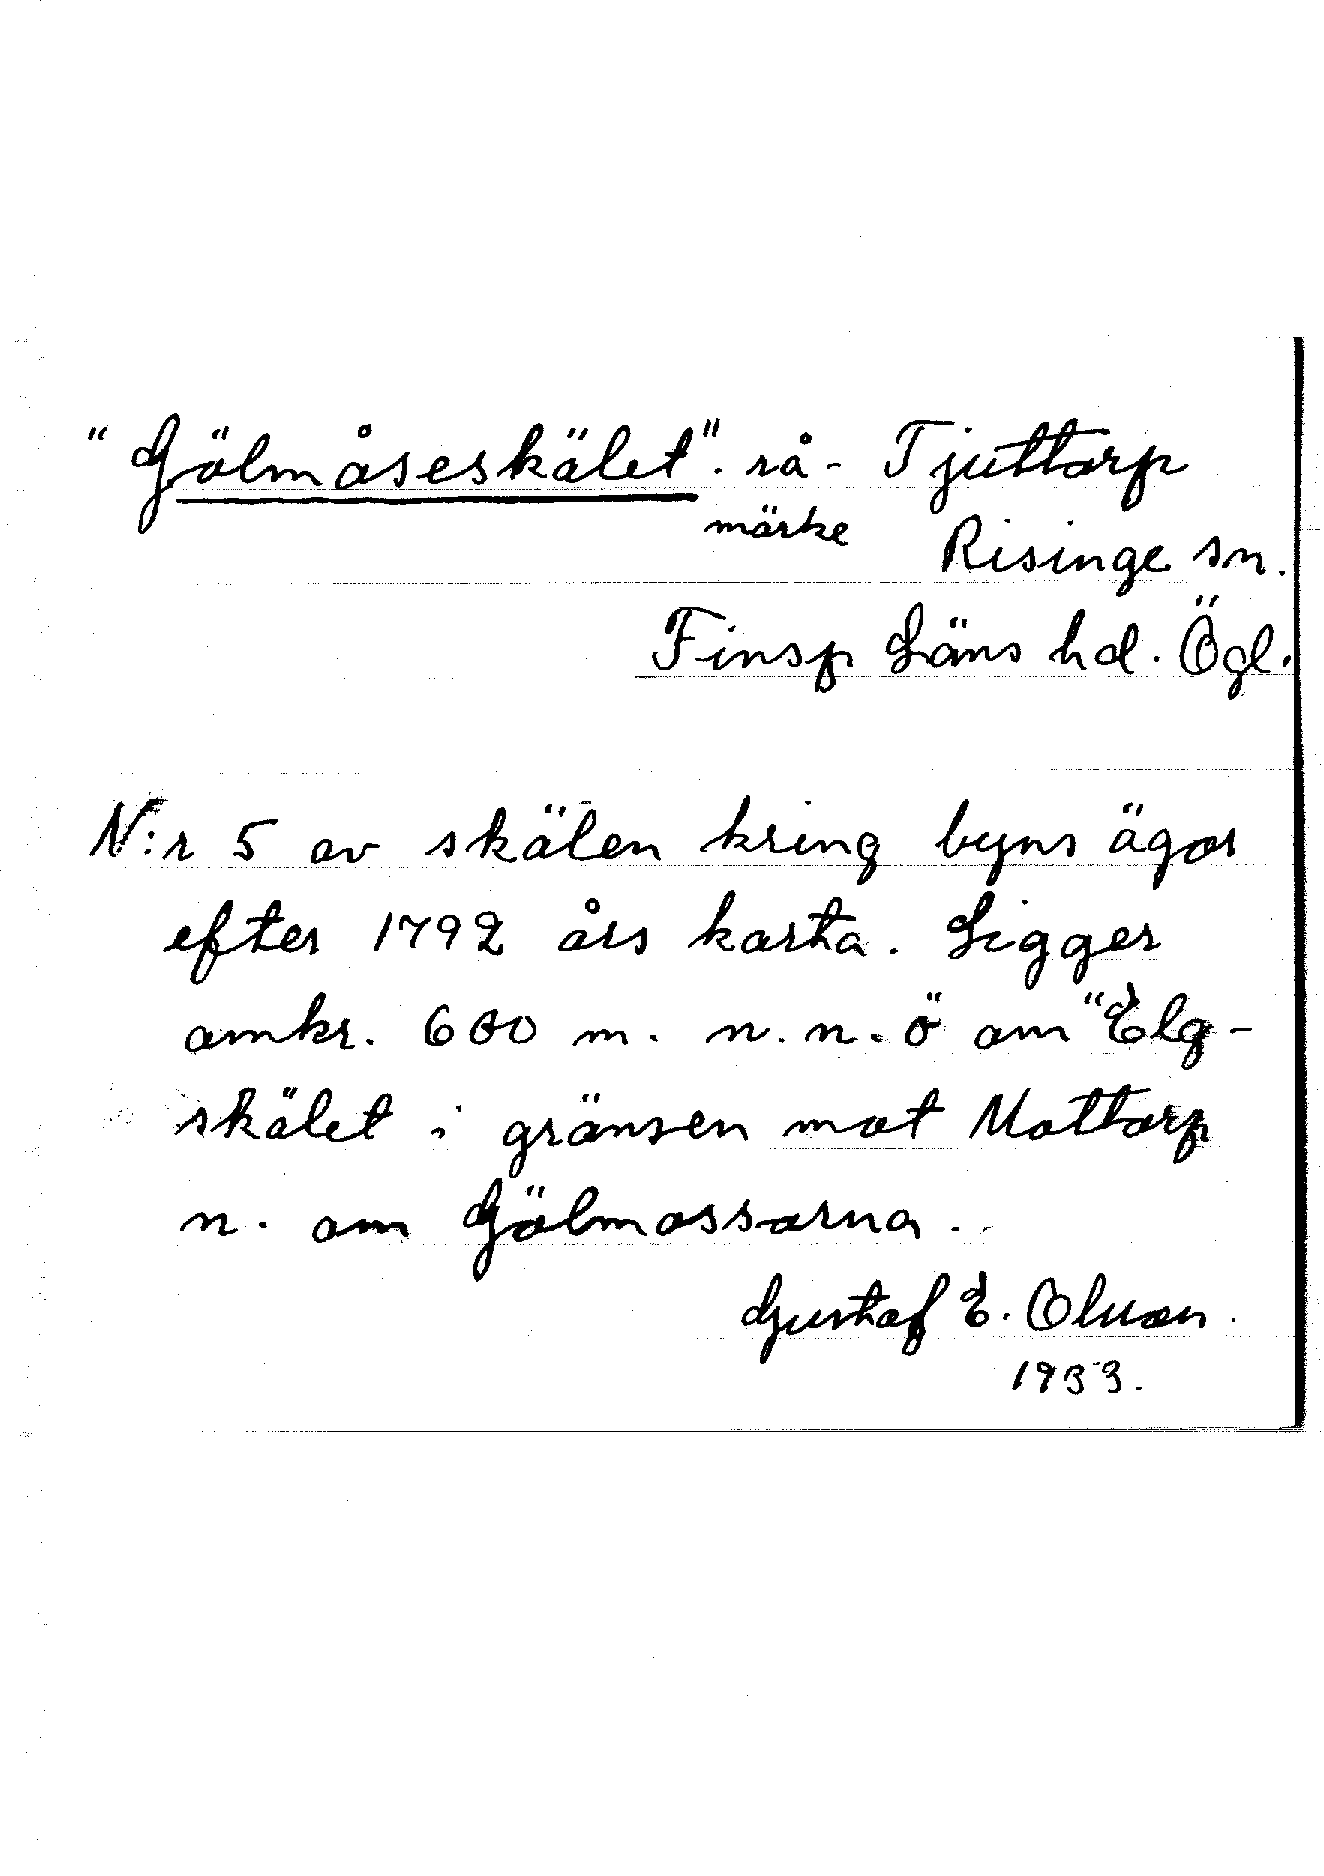 "Gölmåseskälet". rå- Tjuttorp
märke Risinge sn.
Finsp Läns hd. Ögl.
N:r 5 av skälen kring byns ägor
efter 1792 års karta. Ligger
omkr. 600 m. n.n.ö om "Elg-
skälet i gränsen mot Mottorp
n. om Gölmossarna.
Gustaf E. Olsson.
1933.